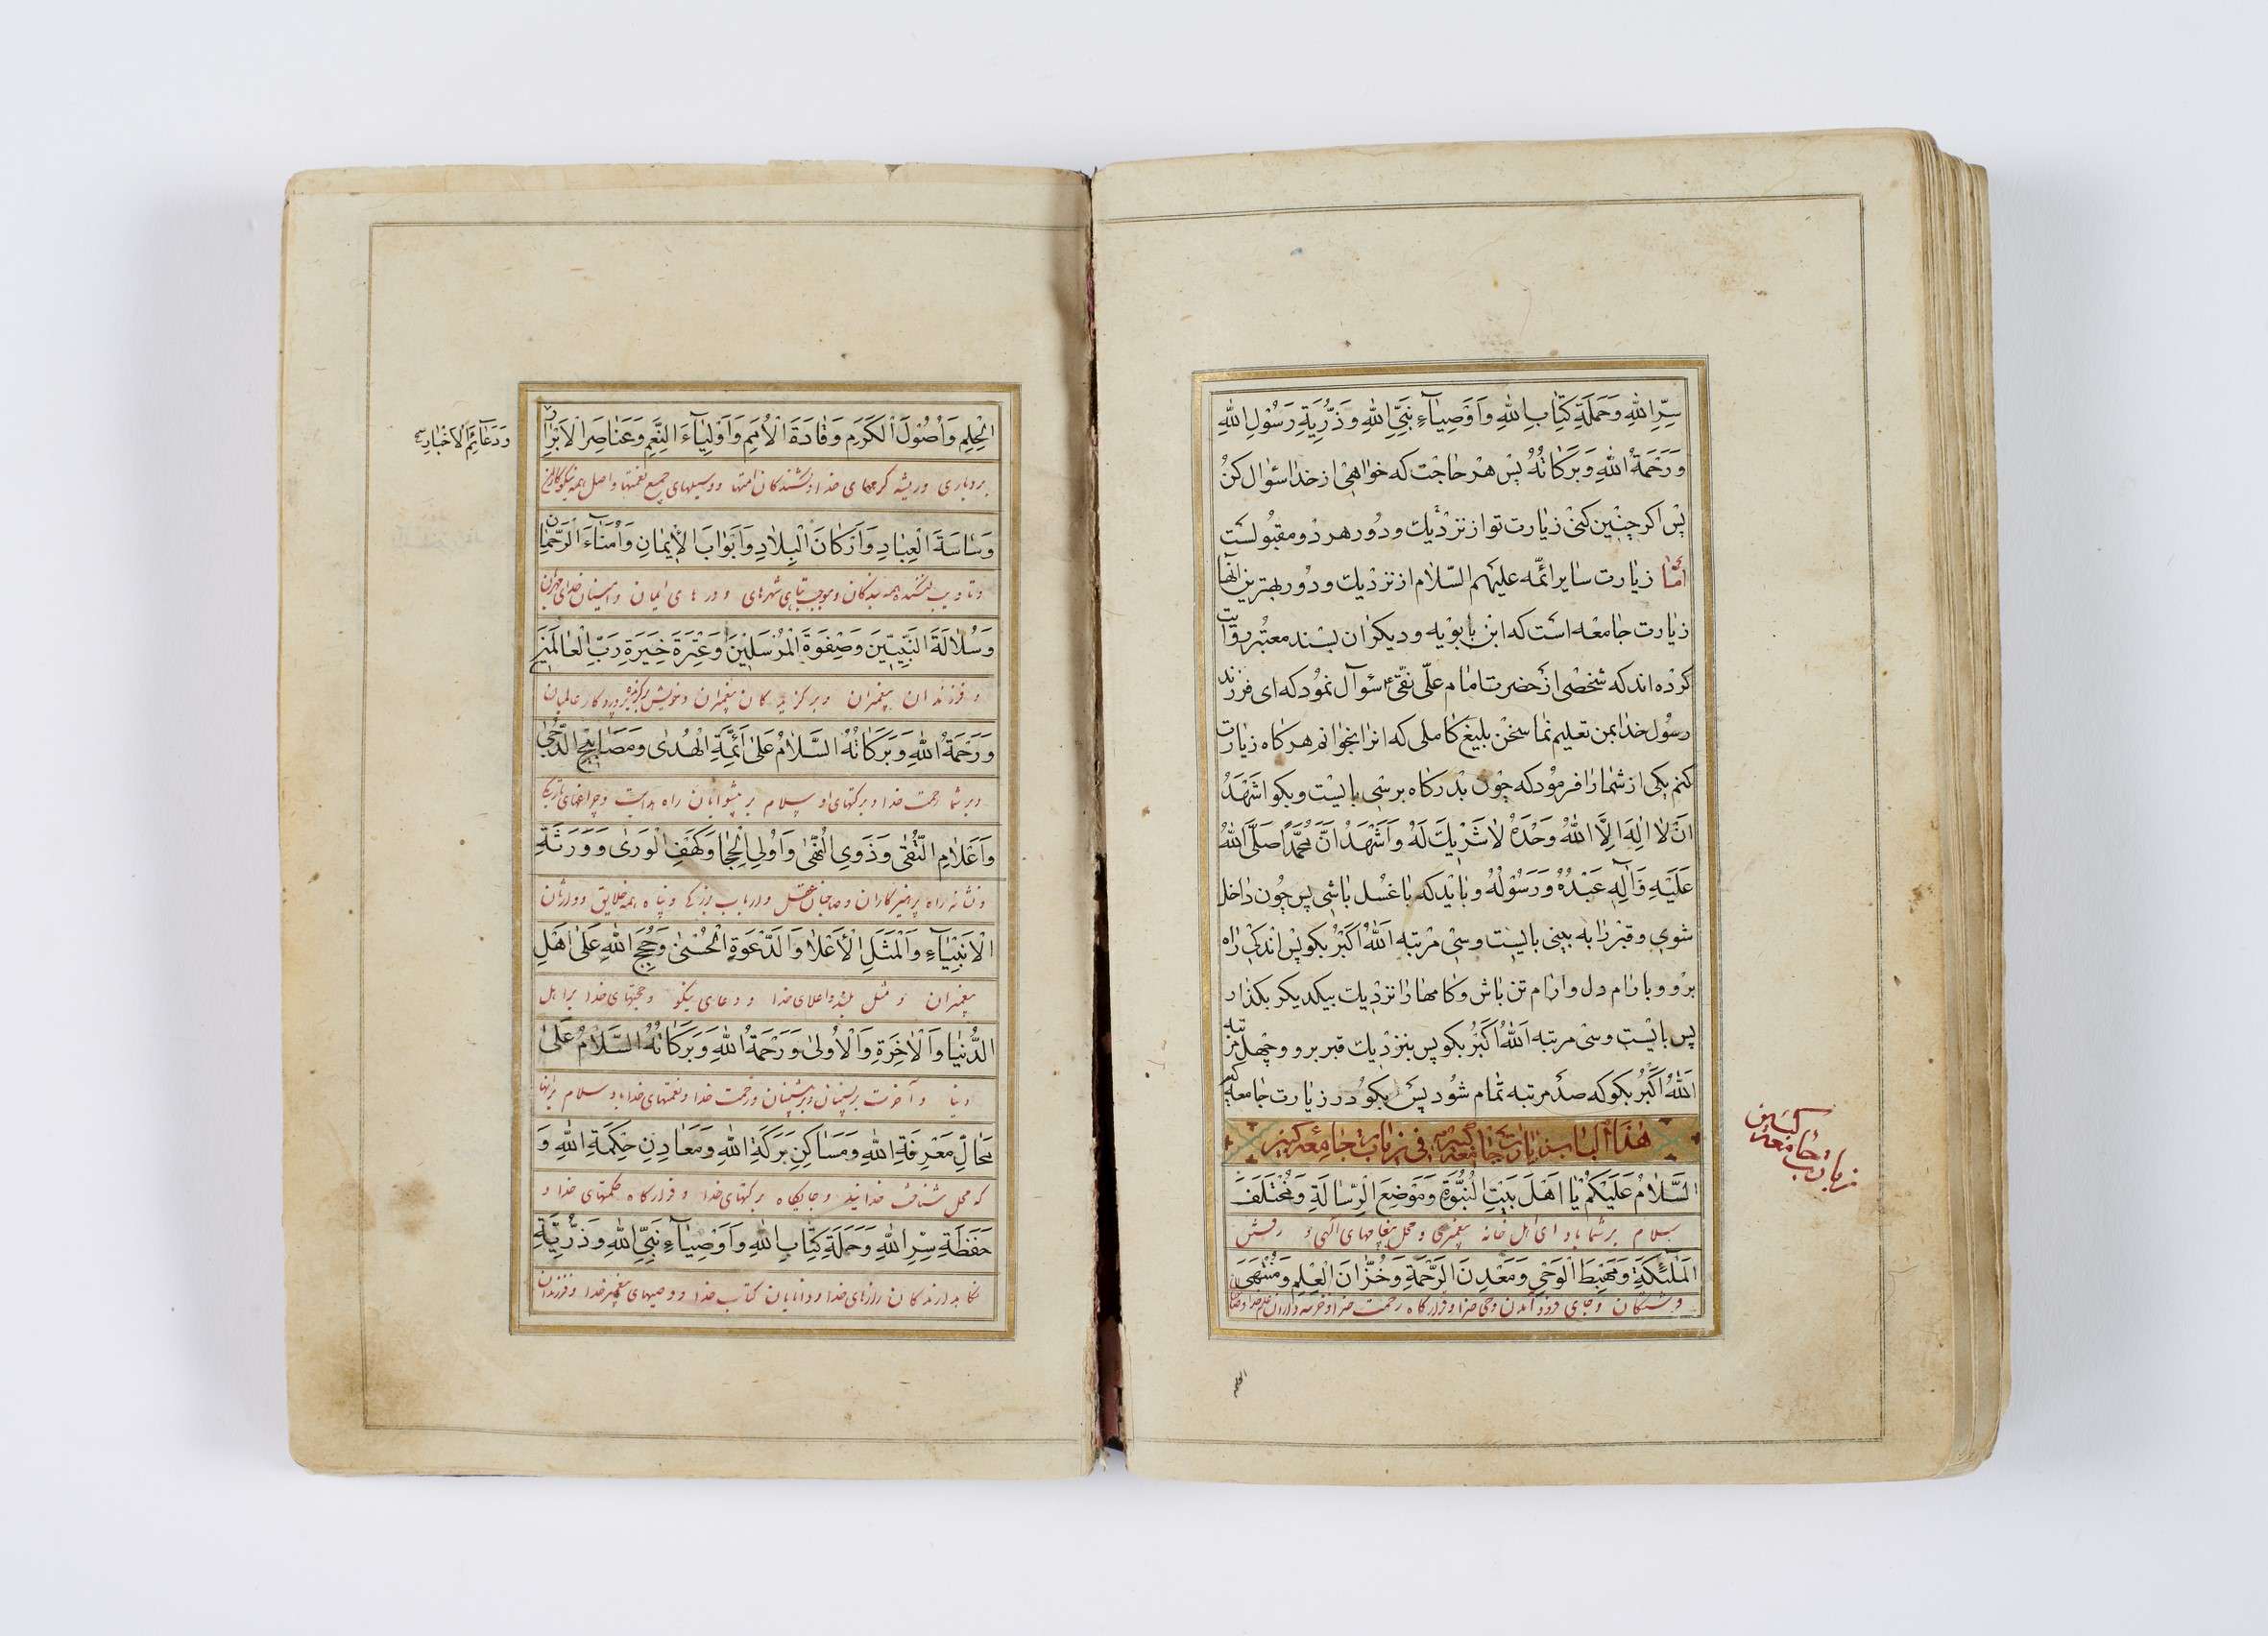 سِرِّ اللهِ وَحَمَلَةِ كِتَابِ اللهِ وَاَوْصِيَآءِ نَبِيِّ اللهِ وَذُرِّيَةِ رَسُوْلِ اللهِ
وَرَحْمَةُ اللهِ وَبَرَكَاتُهُ پس هر حاجت که خواهی از خدا سؤال کن
پس اکر چنین کنی زیارت تو از نزدیك و دور هر دو مقبولست
امّا زیارت سایر ائمّه علیهم السّلام از نزدیك و دور بهترین آنها
زیارت جامعه است که ابن بابویه و دیکران بسند معتبر روایت
کرده اند که شخصی از حضرت امام علی نقی ع سؤآل نمود که ای فرزند
رسول خدا بمن تعلیم نما سخن بلیغ کاملی که انرا بخوانم هر کاه زیارت
کنم یکی از شما را فرمود که چون بدرکاه برسی بایست و بکو اَشْهَدُ
اَنْ لَا اِلٰهَ اِلَّا اللهُ وَحْدَهُ لَا شَرِيْكَ لَهُ وَاَشْهَدُ اَنَّ مُحَمَّدًا صَلَّى اللهُ
عَلَيْهِ وَاٰلِهِ عَبْدُهُ وَرَسُوْلُهُ و باید که با غسل باشی پس چون داخل
شوی و قبر را به بینی بایست و سی مرتبه اَللهُ اَكْبَرُ بکو پس اندکی راه
برو و با رام دل و ارام تن باش و کامها را نزدیك بیکدیکر بکذار
پس بایست و سی مرتبه اَللهُ اَكْبَرُ بکو پس بنزدیك قبر برو و چهل مرتبه
اَللهُ اَكْبَرُ بکو که صد مرتبه تمام شود پس بکو در زیارت جامعه کبیر
هٰذَا الباب زیارت جامعه کبیره فی زیارت جامعه کبیر
اَلسَّلَامُ عَلَيْكُمْ يَا اَهْلَ بَيْتِ النُّبُوَّةِ وَمَوْضِعَ الرِّسَالَةِ وَمُخْتَلَفَ
سلام بر شما باد ای اهل خانه پیغمبری و محل پیغامهای الهی
اَلْمَلٰٓئِكَةِ وَمَهْبِطَ الْوَحْيِ وَمَعْدِنَ الرَّحْمَةِ وَخُزَّانَ الْعِلْمِ وَمُنْتَهَى
فرشتکان و جای فرود آمدن وحی خدا و قرارکاه رحمت خدا
زیارت جامعه کبیر
الحلم
اَلْحِلْمِ وَاُصُوْلَ الْكَرَمِ وَقَادَةَ الْاُمَمِ وَاَوْلِيَآءَ النِّعَمِ وَعَنَاصِرَ الْاَبْرَارِ
وَدَعَآئِمَ الْاَخْيَارِ
بردباری و ریشه کرمهای خدا و کشندکان امتها و وسیلهای جمیع نعمتها و اصل همه نیکوکاران
وَسَاسَةَ الْعِبَادِ وَاَرْكَانَ الْبِلَادِ وَاَبْوَابَ الْاِيْمَانِ وَاُمَنَآءَ الرَّحْمٰنِ
و تادیب کننده همه بندکان و موجب بقای شهرهای و درهای ایمان و امینان خدای مهربان
وَسُلَالَةَ النَّبِيِّيْنَ وَصَفْوَةَ الْمُرْسَلِيْنَ وَعِتْرَةَ خِيَرَةِ رَبِّ الْعَالَمِيْنَ
و فرزندان پیغمبران و برکزیده کان پیغمبران و خویش برکزیده پروردکار عالمیان
وَرَحْمَةُ اللهِ وَبَرَكَاتُهُ اَلسَّلَامُ عَلٰى اَئِمَّةِ الْهُدٰى وَمَصَابِيْحِ الدُّجٰى
و بر شما رحمت خدا و برکتهای او سلام بر پیشوایان راه هدایت و چراغهای تاریکی
وَاَعْلَامِ التُّقٰى وَذَوِي النُّهٰى وَاُولِي الْحِجَا وَكَهْفِ الْوَرٰى وَوَرَثَةِ
و نشانه راه پرهیزکاران و صاحبان عقل و ارباب زیرکی و پناه همه خلایق و وارثان
الْاَنْبِيَآءِ وَالْمَثَلِ الْاَعْلَا وَالدَّعْوَةِ الْحُسْنٰى وَحُجَجِ اللهِ عَلٰى اَهْلِ
پیغمبران و مثل بلند و اعلای خدا و دعای نیکو و حجتهای خدا بر اهل
الدُّنْيَا وَالْاٰخِرَةِ وَالْاُولٰى وَرَحْمَةُ اللهِ وَبَرَكَاتُهُ السَّلَامُ عَلٰى
دنیا و آخرت و رحمت خدا و نعمتهای خدا باد سلام بر آنها
مَحَالِّ مَعْرِفَةِ اللهِ وَمَسَاكِنِ بَرَكَةِ اللهِ وَمَعَادِنِ حِكْمَةِ اللهِ وَ
که محل شناخت خدایند و جایکاه برکتهای خدا و قرارکاه حکمتهای خدا و
حَفَظَةِ سِرِّ اللهِ وَحَمَلَةِ كِتَابِ اللهِ وَاَوْصِيَآءِ نَبِيِّ اللهِ وَذُرِّيَّةِ
نکاهدارندکان رازهای خدا و دانایان کتاب خدا و وصیهای پیغمبر خدا و فرزندان